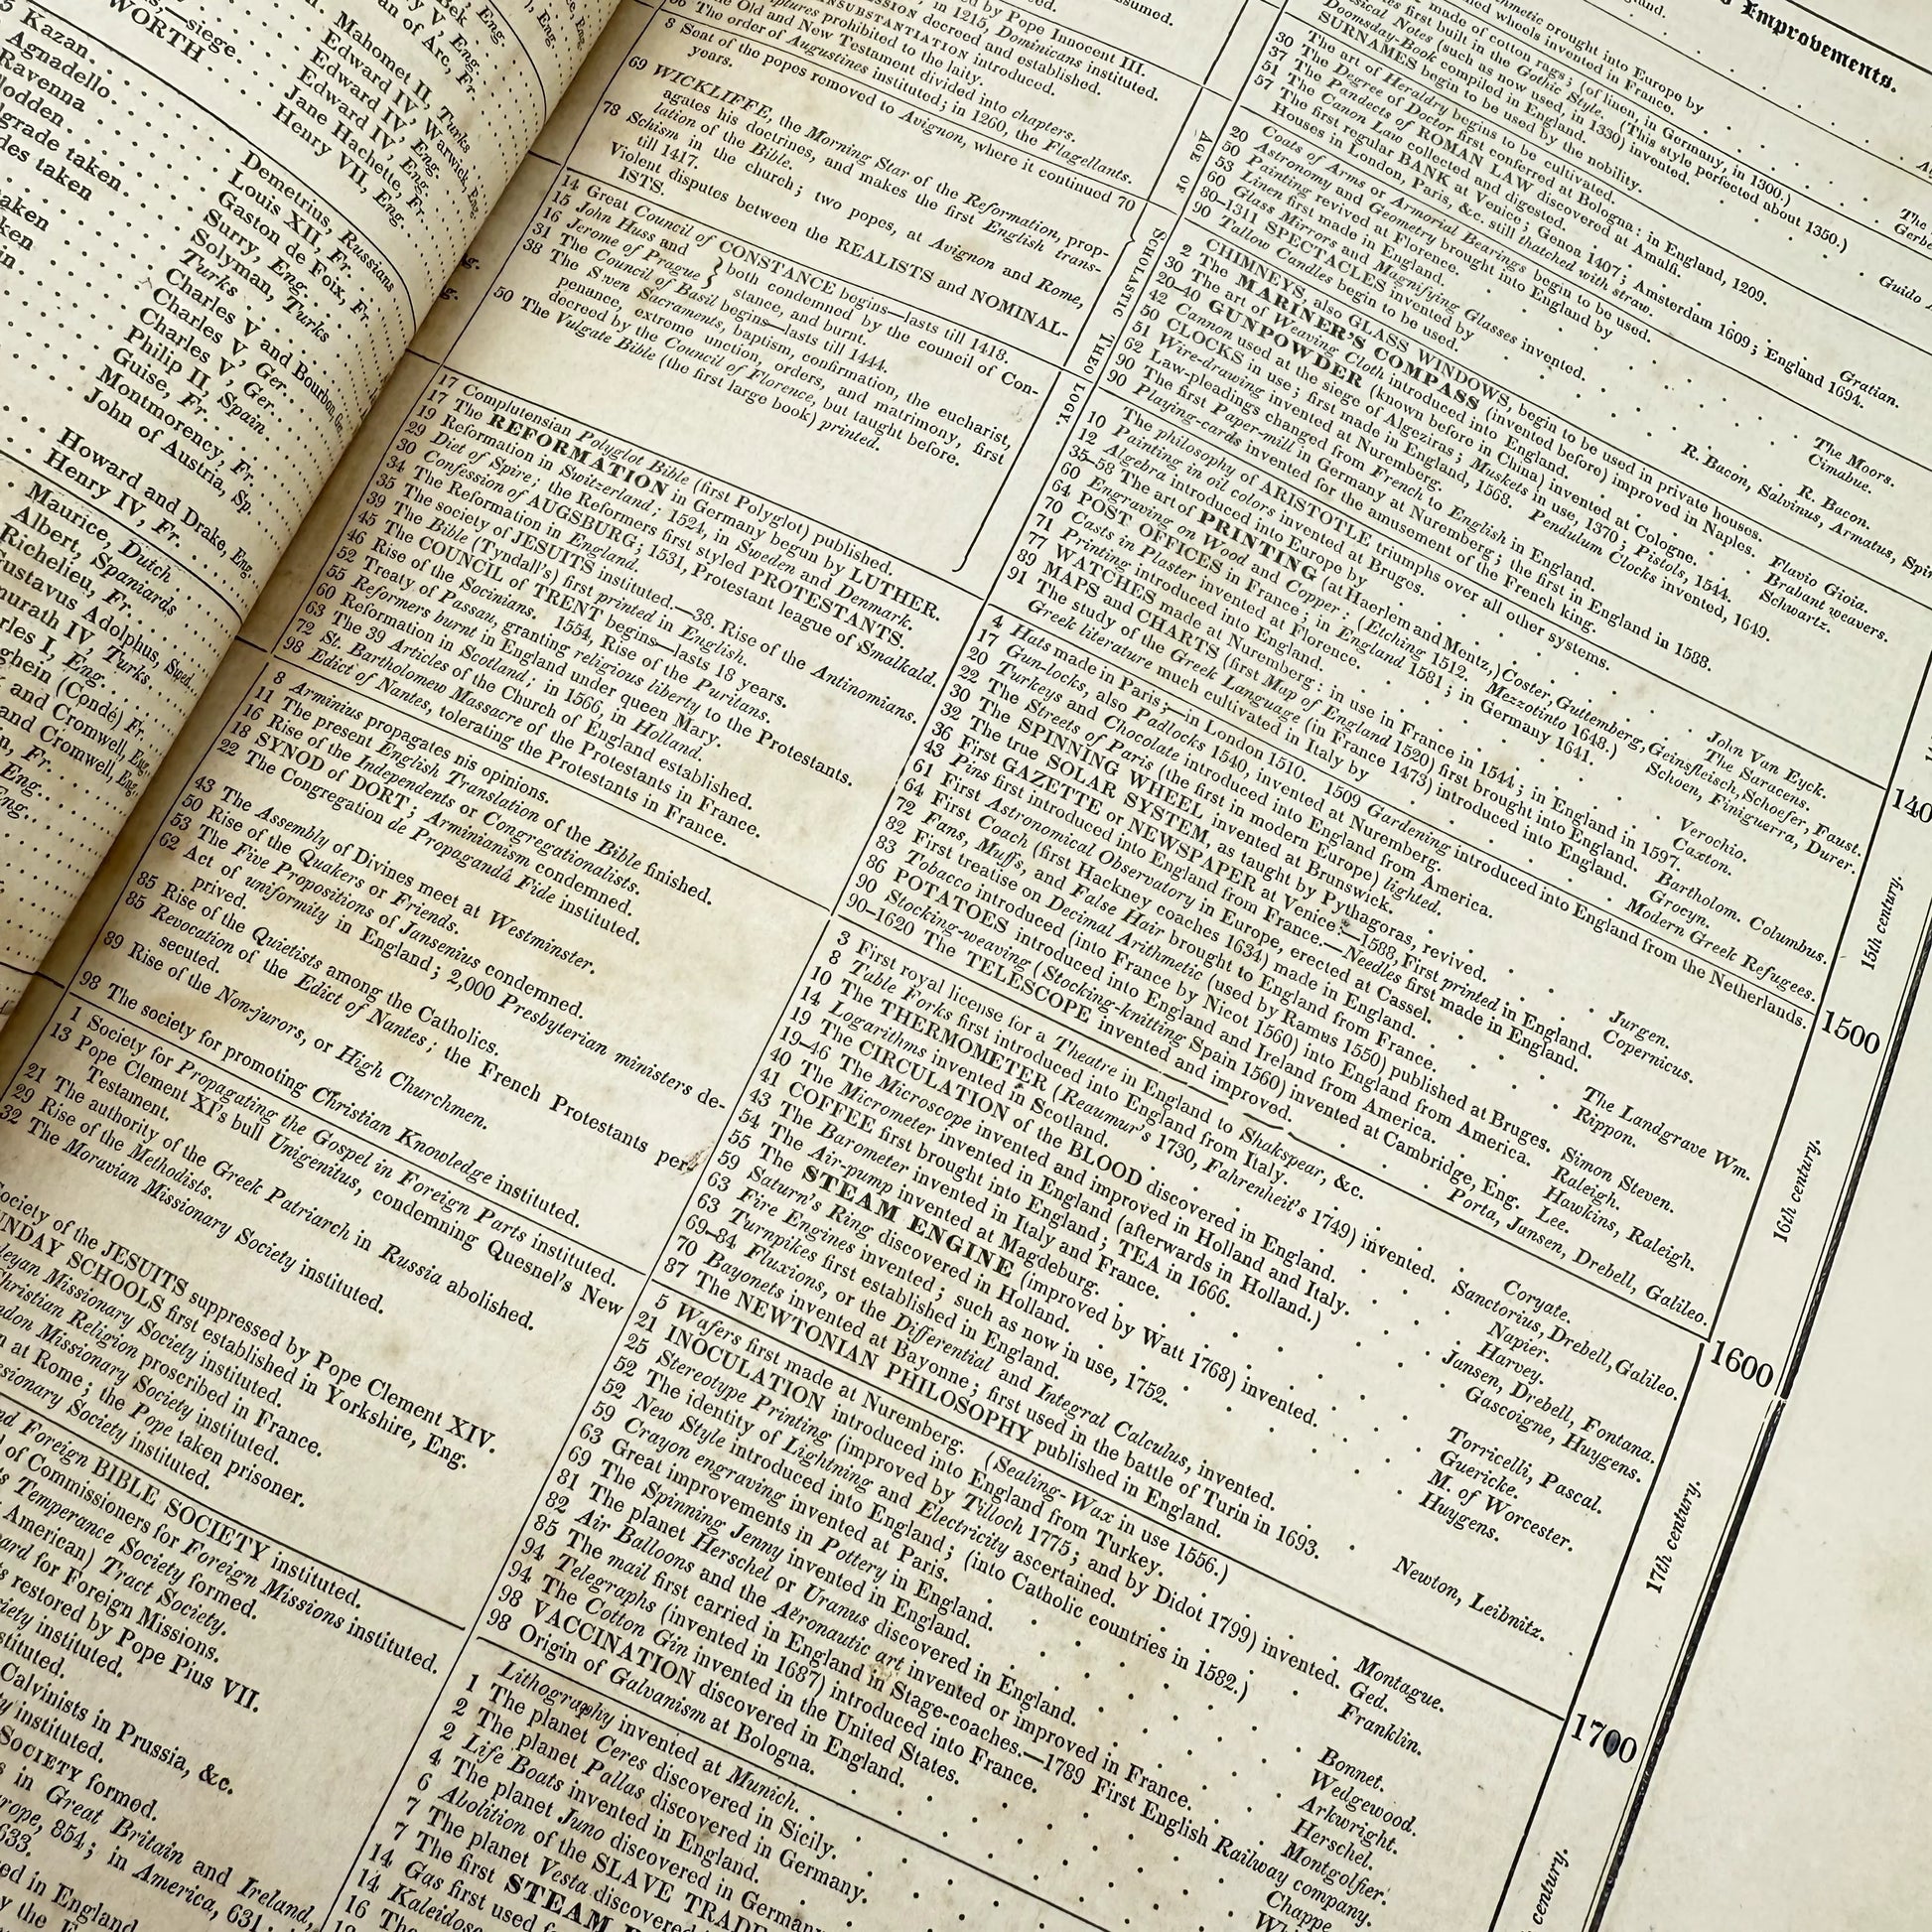 Improvements.
5 Kazan
Agnadello
Ravenna
WORTH
Mahomet II, Turks
Edward IV, Warwick, Eng.
Edward IV, Eng.
Jane Hachette, Fr.
Henry VII, Eng.
Demetrius, Russians
Louis XII, Fr.
Gaston de Foix, Fr.
Surry, Eng.
Solyman, Turks
Turks
Charles V, and Bourbon, Ger.
Charles V, Ger.
Charles V, Ger.
Philip II, Spain
Guise, Fr.
Montmorency, Fr.
John of Austria, Sp.
Howard and Drake, Eng.
Henry IV, Fr.
Maurice, Dutch
Albert, Spaniards
Richelieu, Fr.
Gustavus Adolphus, Swed.
and Cromwell, Eng.
and Cromwell, Eng.
in 1215, Dominicans instituted.
The order of Augustines instituted; in 1260, the Flagellants.
8 Seat of the popes removed to Avignon, where it continued 70
years.
69 WICKLIFFE, the Morning Star of the Reformation, prop-
agates his doctrines, and makes the first English trans-
lation of the Bible.
78 Schism in the church; two popes, at Avignon and Rome,
till 1417.
Violent disputes between the REALISTS and NOMINAL-
ISTS.
14 Great Council of CONSTANCE begins—lasts till 1418.
15 John Huss and } both condemned by the council of Con-
16 Jerome of Prague } stance, and burnt.
31 The Council of Basil begins—lasts till 1444.
38 The Seven Sacraments, baptism, confirmation, the eucharist,
penance, extreme unction, orders, and matrimony, first
decreed by the Council of Florence, but taught before.
50 The Vulgate Bible (the first large book) printed.
17 Complutensian Polyglot Bible (first Polyglot) published.
17 The REFORMATION in Germany begun by LUTHER.
19 Reformation in Switzerland; 1524, in Sweden and Denmark.
29 Diet of Spire; the Reformers first styled PROTESTANTS.
30 Confession of AUGSBURG; 1531, Protestant league of Smalkald.
34 The Reformation in England.
35 The society of JESUITS instituted.—38, Rise of the Antinomians.
39 The Bible (Tyndall's) first printed in English.
45 The COUNCIL of TRENT begins—lasts 18 years.
46 Rise of the Socinians. 1554, Rise of the Puritans.
52 Treaty of Passau, granting religious liberty to the Protestants.
55 Reformers burnt in England under queen Mary.
60 Reformation in Scotland; in 1566, in Holland.
63 The 39 Articles of the Church of England established.
72 St. Bartholomew Massacre of the Protestants in France.
98 Edict of Nantes, tolerating the Protestants in France.
8 Arminius propagates his opinions.
11 The present English Translation of the Bible finished.
16 Rise of the Independents or Congregationalists.
18 SYNOD of DORT; Arminianism condemned.
22 The Congregation de Propagandâ Fide instituted.
43 The Assembly of Divines meet at Westminster.
50 Rise of the Quakers or Friends.
53 The Five Propositions of Jansenius condemned.
62 Act of uniformity in England; 2,000 Presbyterian ministers de-
prived.
85 Rise of the Quietists among the Catholics.
85 Revocation of the Edict of Nantes; the French Protestants per-
secuted.
89 Rise of the Non-jurors, or High Churchmen.
98 The society for promoting Christian Knowledge instituted.
1 Society for Propagating the Gospel in Foreign Parts instituted.
13 Pope Clement XI's bull Unigenitus, condemning Quesnel's New
Testament.
21 The authority of the Greek Patriarch in Russia abolished.
29 Rise of the Methodists.
32 The Moravian Missionary Society instituted.
Society of the JESUITS suppressed by Pope Clement XIV.
SUNDAY SCHOOLS first established in Yorkshire, Eng.
Missionary Society instituted.
Christian Religion proscribed in France.
Missionary Society instituted.
at Rome; the Pope taken prisoner.
Missionary Society instituted.
and Foreign BIBLE SOCIETY instituted.
of Commissioners for Foreign Missions instituted.
Temperance Society formed.
American) Tract Society.
for Foreign Missions.
restored by Pope Pius VII.
instituted.
Calvinists in Prussia, &c.
instituted.
SOCIETY formed.
in Great Britain and Ireland,
854; in America, 631;
AGE OF SCHOLASTIC THEOLOGY.
Doomsday-Book compiled in England.
SURNAMES begin to be used by the nobility.
30 The art of Heraldry begins to be cultivated.
37 The Degree of Doctor first conferred at Bologna: in England, 1209.
51 The Pandects of ROMAN LAW discovered at Amalfi.
51 The Canon Law collected and digested. Gratian.
57 The first regular BANK at Venice; Genoa 1407; Amsterdam 1609; England 1694.
Houses in London, Paris, &c. still thatched with straw.
20 Coats of Arms or Armorial Bearings begin to be used.
20 Astronomy and Geometry brought into England by The Moors.
50 Painting revived at Florence. Cimabue.
53 Linen first made in England.
60 Glass Mirrors and Magnifying Glasses invented. R. Bacon.
80–1311 SPECTACLES invented by R. Bacon, Salvinus, Armatus, Spina
90 Tallow Candles begin to be used.
CHIMNEYS, also GLASS WINDOWS, begin to be used in private houses.
2 The MARINER'S COMPASS (invented before) improved in Naples. Flavio Gioia.
30 The art of Weaving Cloth introduced into England. Brabant weavers.
20–40 GUNPOWDER (known before in China) invented at Cologne. Schwartz.
42 Cannon used at the siege of Algeziras; Muskets in use, 1370; Pistols, 1544.
50 CLOCKS in use; first made in England, 1568. Pendulum Clocks invented, 1649.
51 Wire-drawing invented at Nuremberg.
62 Law-pleadings changed from French to English in England.
90 The first Paper-mill in Germany at Nuremberg; the first in England in 1588.
90 Playing-cards invented for the amusement of the French king.
The philosophy of ARISTOTLE triumphs over all other systems.
10 Painting in oil colors invented at Bruges. John Van Eyck.
12 Algebra introduced into Europe by The Saracens.
35–58 The art of PRINTING (at Haerlem and Mentz,) Coster, Guttemberg, Geinsfleisch, Schoefer, Faust.
60 Engraving on Wood and Copper; (Etching 1512. Mezzotinto 1648.) Schoen, Finiguerra, Durer.
64 POST OFFICES in France; in England 1581; in Germany 1641.
70 Casts in Plaster invented at Florence. Verochio.
71 Printing introduced into England. Caxton.
77 WATCHES made at Nuremberg: in use in France in 1544; in England in 1597.
89 MAPS and CHARTS (first Map of England 1520) first brought into England. Bartholom. Columbus.
91 The study of the Greek Language (in France 1473) introduced into England. Grocyn.
Greek literature much cultivated in Italy by Modern Greek Refugees.
4 Hats made in Paris;—in London 1510. 1509 Gardening introduced into England from the Netherlands.
17 Gun-locks, also Padlocks 1540, invented at Nuremberg.
20 Turkeys and Chocolate introduced into England from America.
22 The Streets of Paris (the first in modern Europe) lighted.
30 The SPINNING WHEEL invented at Brunswick. Jurgen.
32 The true SOLAR SYSTEM, as taught by Pythagoras, revived. Copernicus.
36 First GAZETTE or NEWSPAPER at Venice:—1588, First printed in England.
43 Pins first introduced into England from France.—Needles first made in England.
61 First Astronomical Observatory in Europe, erected at Cassel. The Landgrave Wm.
64 First Coach (first Hackney coaches 1634) made in England. Rippon.
72 Fans, Muffs, and False Hair brought to England from France.
82 First treatise on Decimal Arithmetic (used by Ramus 1550) published at Bruges. Simon Steven.
83 Tobacco introduced (into France by Nicot 1560) into England from America. Raleigh.
86 POTATOES introduced into England and Ireland from America. Hawkins, Raleigh.
90 Stocking-weaving (Stocking-knitting Spain 1560) invented at Cambridge, Eng. Lee.
90–1620 The TELESCOPE invented and improved. Porta, Jansen, Drebell, Galileo.
3 First royal license for a Theatre in England to Shakspear, &c.
8 Table Forks first introduced into England from Italy. Coryate.
10 The THERMOMETER (Reaumur's 1730, Fahrenheit's 1749) invented. Sanctorius, Drebell, Galileo.
14 Logarithms invented in Scotland. Napier.
19 The CIRCULATION of the BLOOD discovered in England. Harvey.
19–46 The Microscope invented and improved in Holland and Italy. Jansen, Drebell, Fontana.
40 The Micrometer invented in England (afterwards in Holland.) Gascoigne, Huygens.
41 COFFEE first brought into England; TEA in 1666.
43 The Barometer invented in Italy and France. Torricelli, Pascal.
54 The Air-pump invented at Magdeburg. Guericke.
55 The STEAM ENGINE (improved by Watt 1768) invented. M. of Worcester.
59 Saturn's Ring discovered in Holland. Huygens.
63 Fire Engines invented; such as now in use, 1752.
63 Turnpikes first established in England.
69–84 Fluxions, or the Differential and Integral Calculus, invented. Newton, Leibnitz.
70 Bayonets invented at Bayonne; first used in the battle of Turin in 1693.
87 The NEWTONIAN PHILOSOPHY published in England.
5 Wafers first made at Nuremberg. (Sealing-Wax in use 1556.)
21 INOCULATION introduced into England from Turkey. Montague.
25 Stereotype Printing (improved by Tilloch 1775; and by Didot 1799) invented. Ged.
52 The identity of Lightning and Electricity ascertained. Franklin.
52 New Style introduced into England; (into Catholic countries in 1582.)
59 Crayon engraving invented at Paris. Bonnet.
63 Great improvements in Pottery in England. Wedgewood.
69 The Spinning Jenny invented in England. Arkwright.
81 The planet Herschel or Uranus discovered in England. Herschel.
82 Air Balloons and the Aëronautic art invented or improved in France. Montgolfier.
85 The mail first carried in England in Stage-coaches.—1789 First English Railway company.
94 Telegraphs (invented in 1687) introduced into France. Chappe
94 The Cotton Gin invented in the United States.
98 VACCINATION discovered in England.
98 Origin of Galvanism at Bologna.
Lithography invented at Munich.
1 The planet Ceres discovered in Sicily.
2 The planet Pallas discovered in Germany.
2 Life Boats invented in England.
4 The planet Juno discovered in Germany
6 Abolition of the SLAVE TRADE
7 The planet Vesta discovered
7 The first STEAM
14 Gas first used
14
16 The
15th century.
1500
16th century.
1600
17th century.
1700
century.